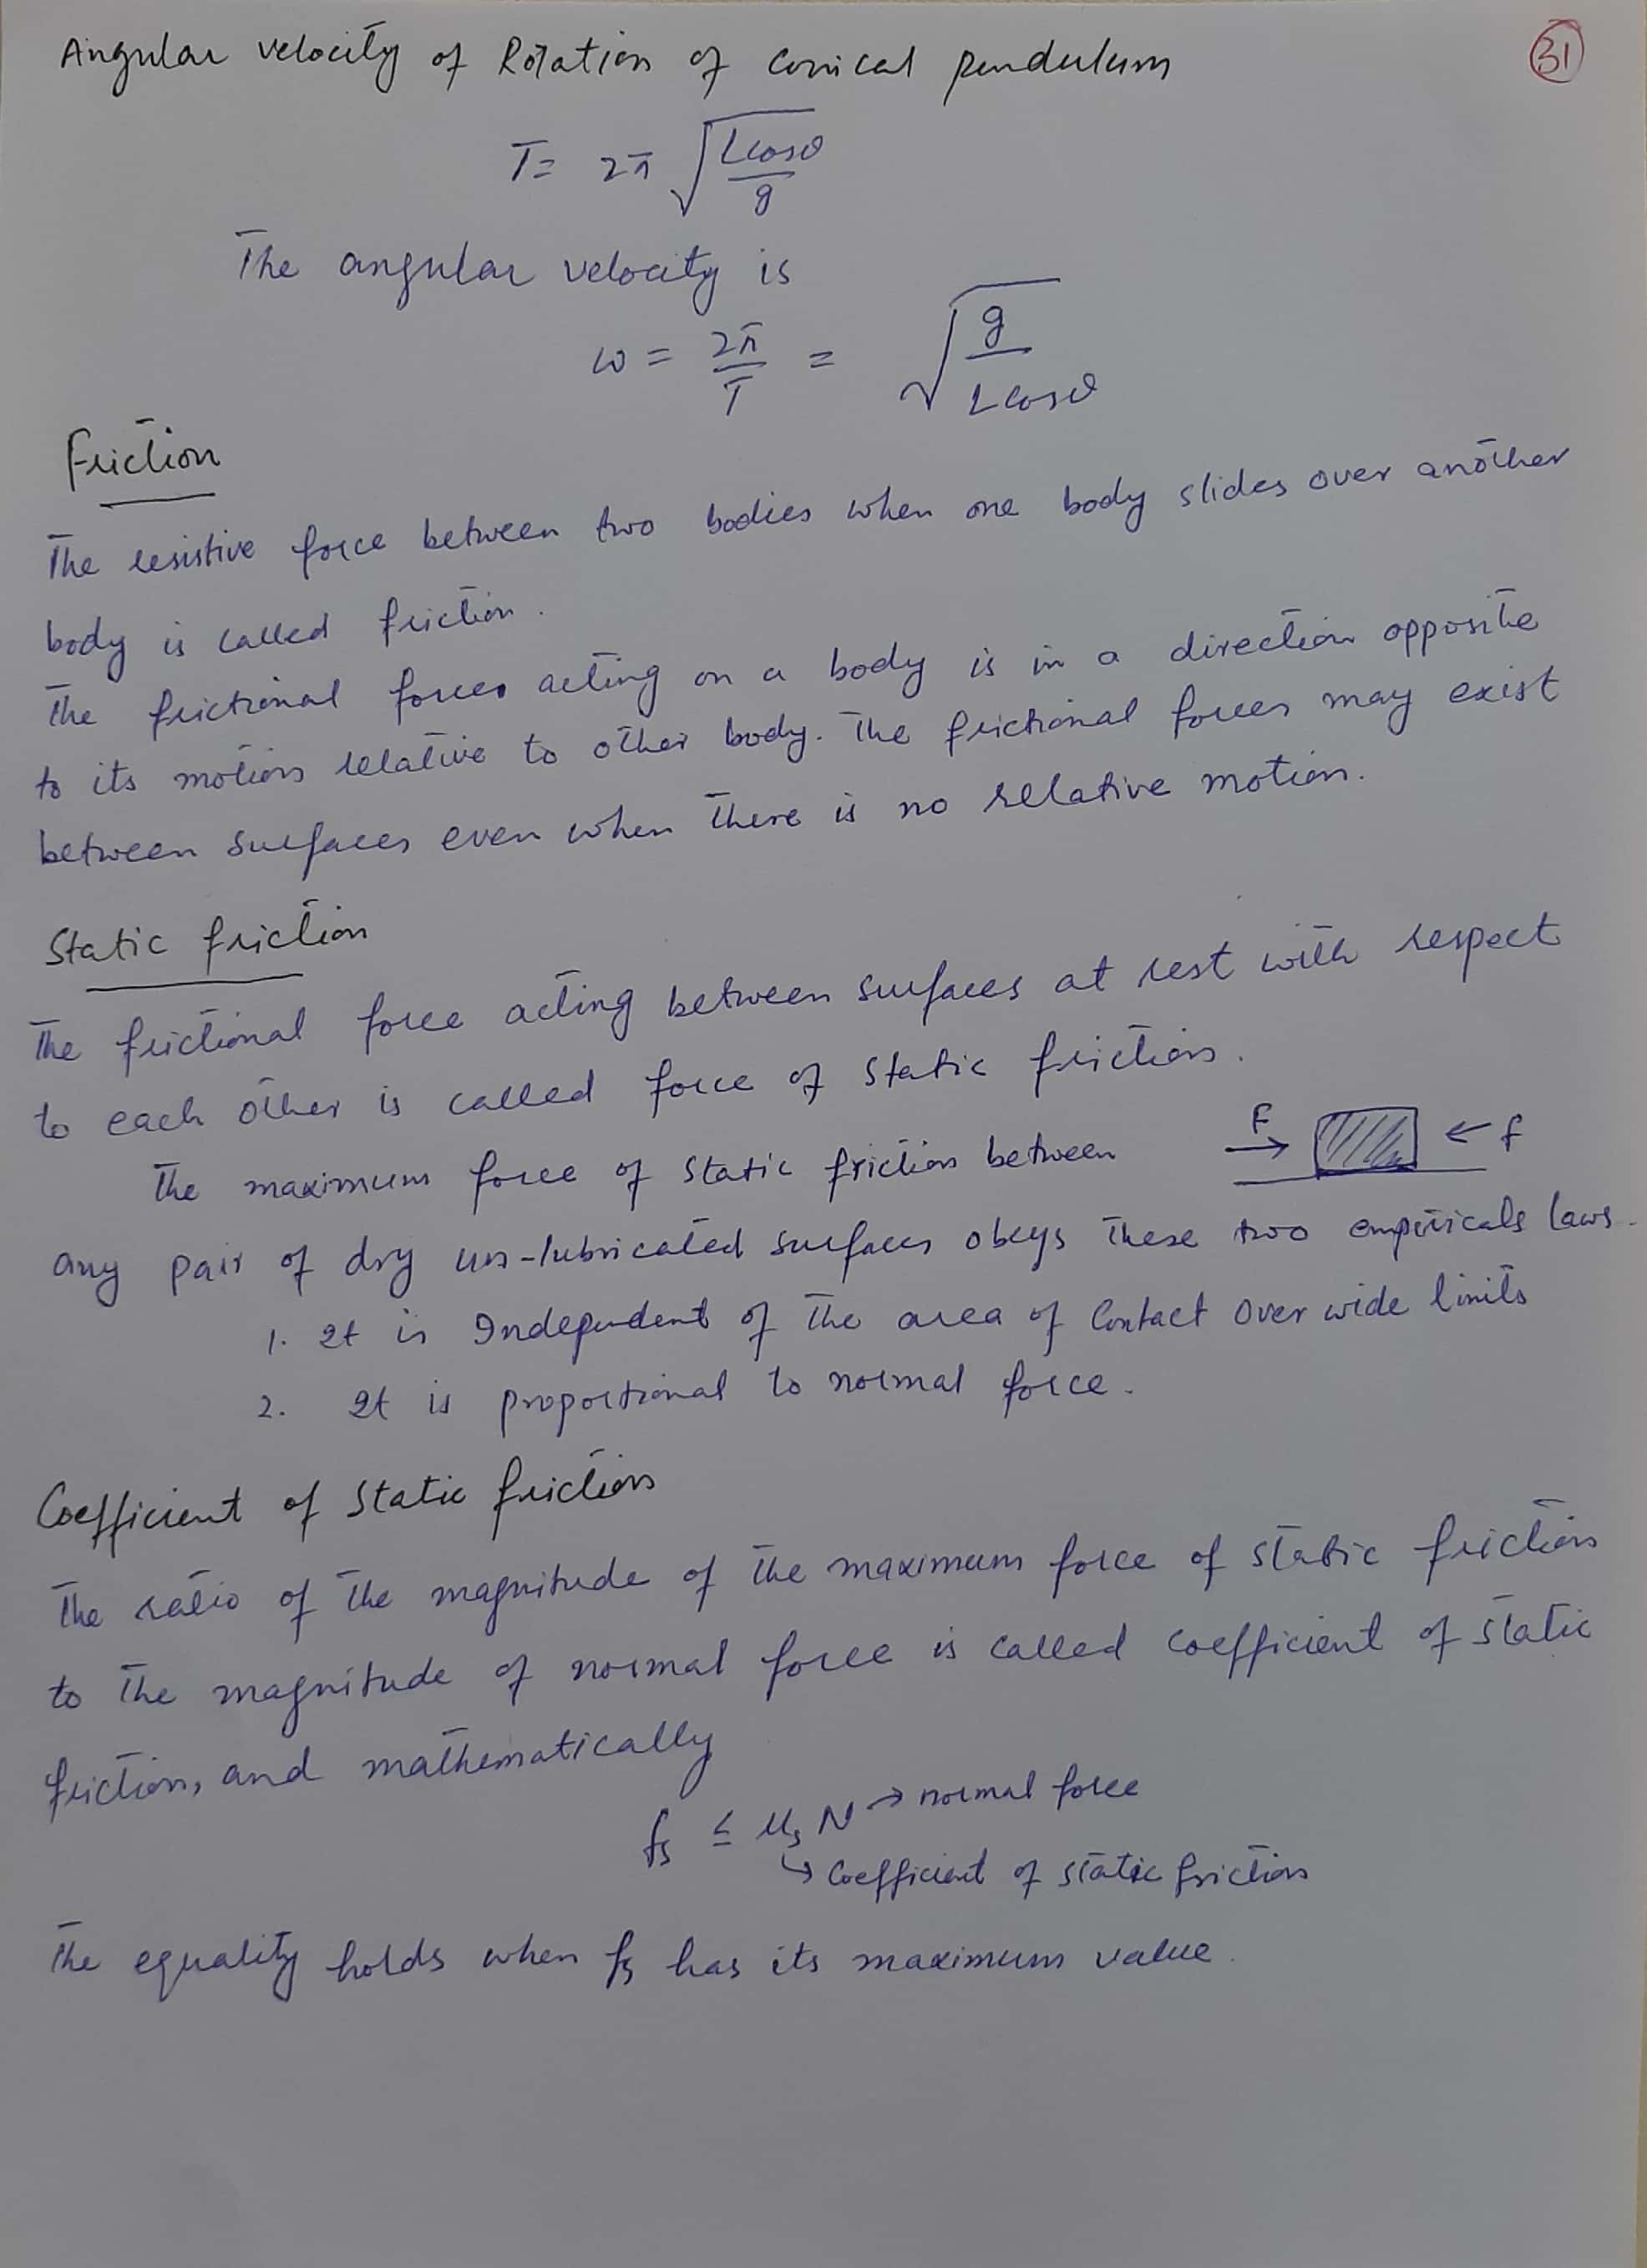 Angular velocity of Rotation of conical pendulum
31
T = 2π √(Lcosθ/g)
The angular velocity is
ω = 2π/T = √(g/Lcosθ)
Friction
The resistive force between two bodies when one body slides over another
body is called friction.
The frictional forces acting on a body is in a direction opposite
to its motion relative to other body. The frictional forces may exist
between surfaces even when there is no relative motion.
Static friction
The frictional force acting between surfaces at rest with respect
to each other is called force of static friction.
F f
The maximum force of static friction between
any pair of dry un-lubricated surfaces obeys these two empiricals laws.
1. It is Independent of the area of Contact over wide limits
2. It is proportional to normal force.
Coefficient of Static friction
The ratio of the magnitude of the maximum force of static friction
to the magnitude of normal force is called coefficient of static
friction, and mathematically
fs ≤ μs N → normal force
↳ Coefficient of static friction
The equality holds when fs has its maximum value.